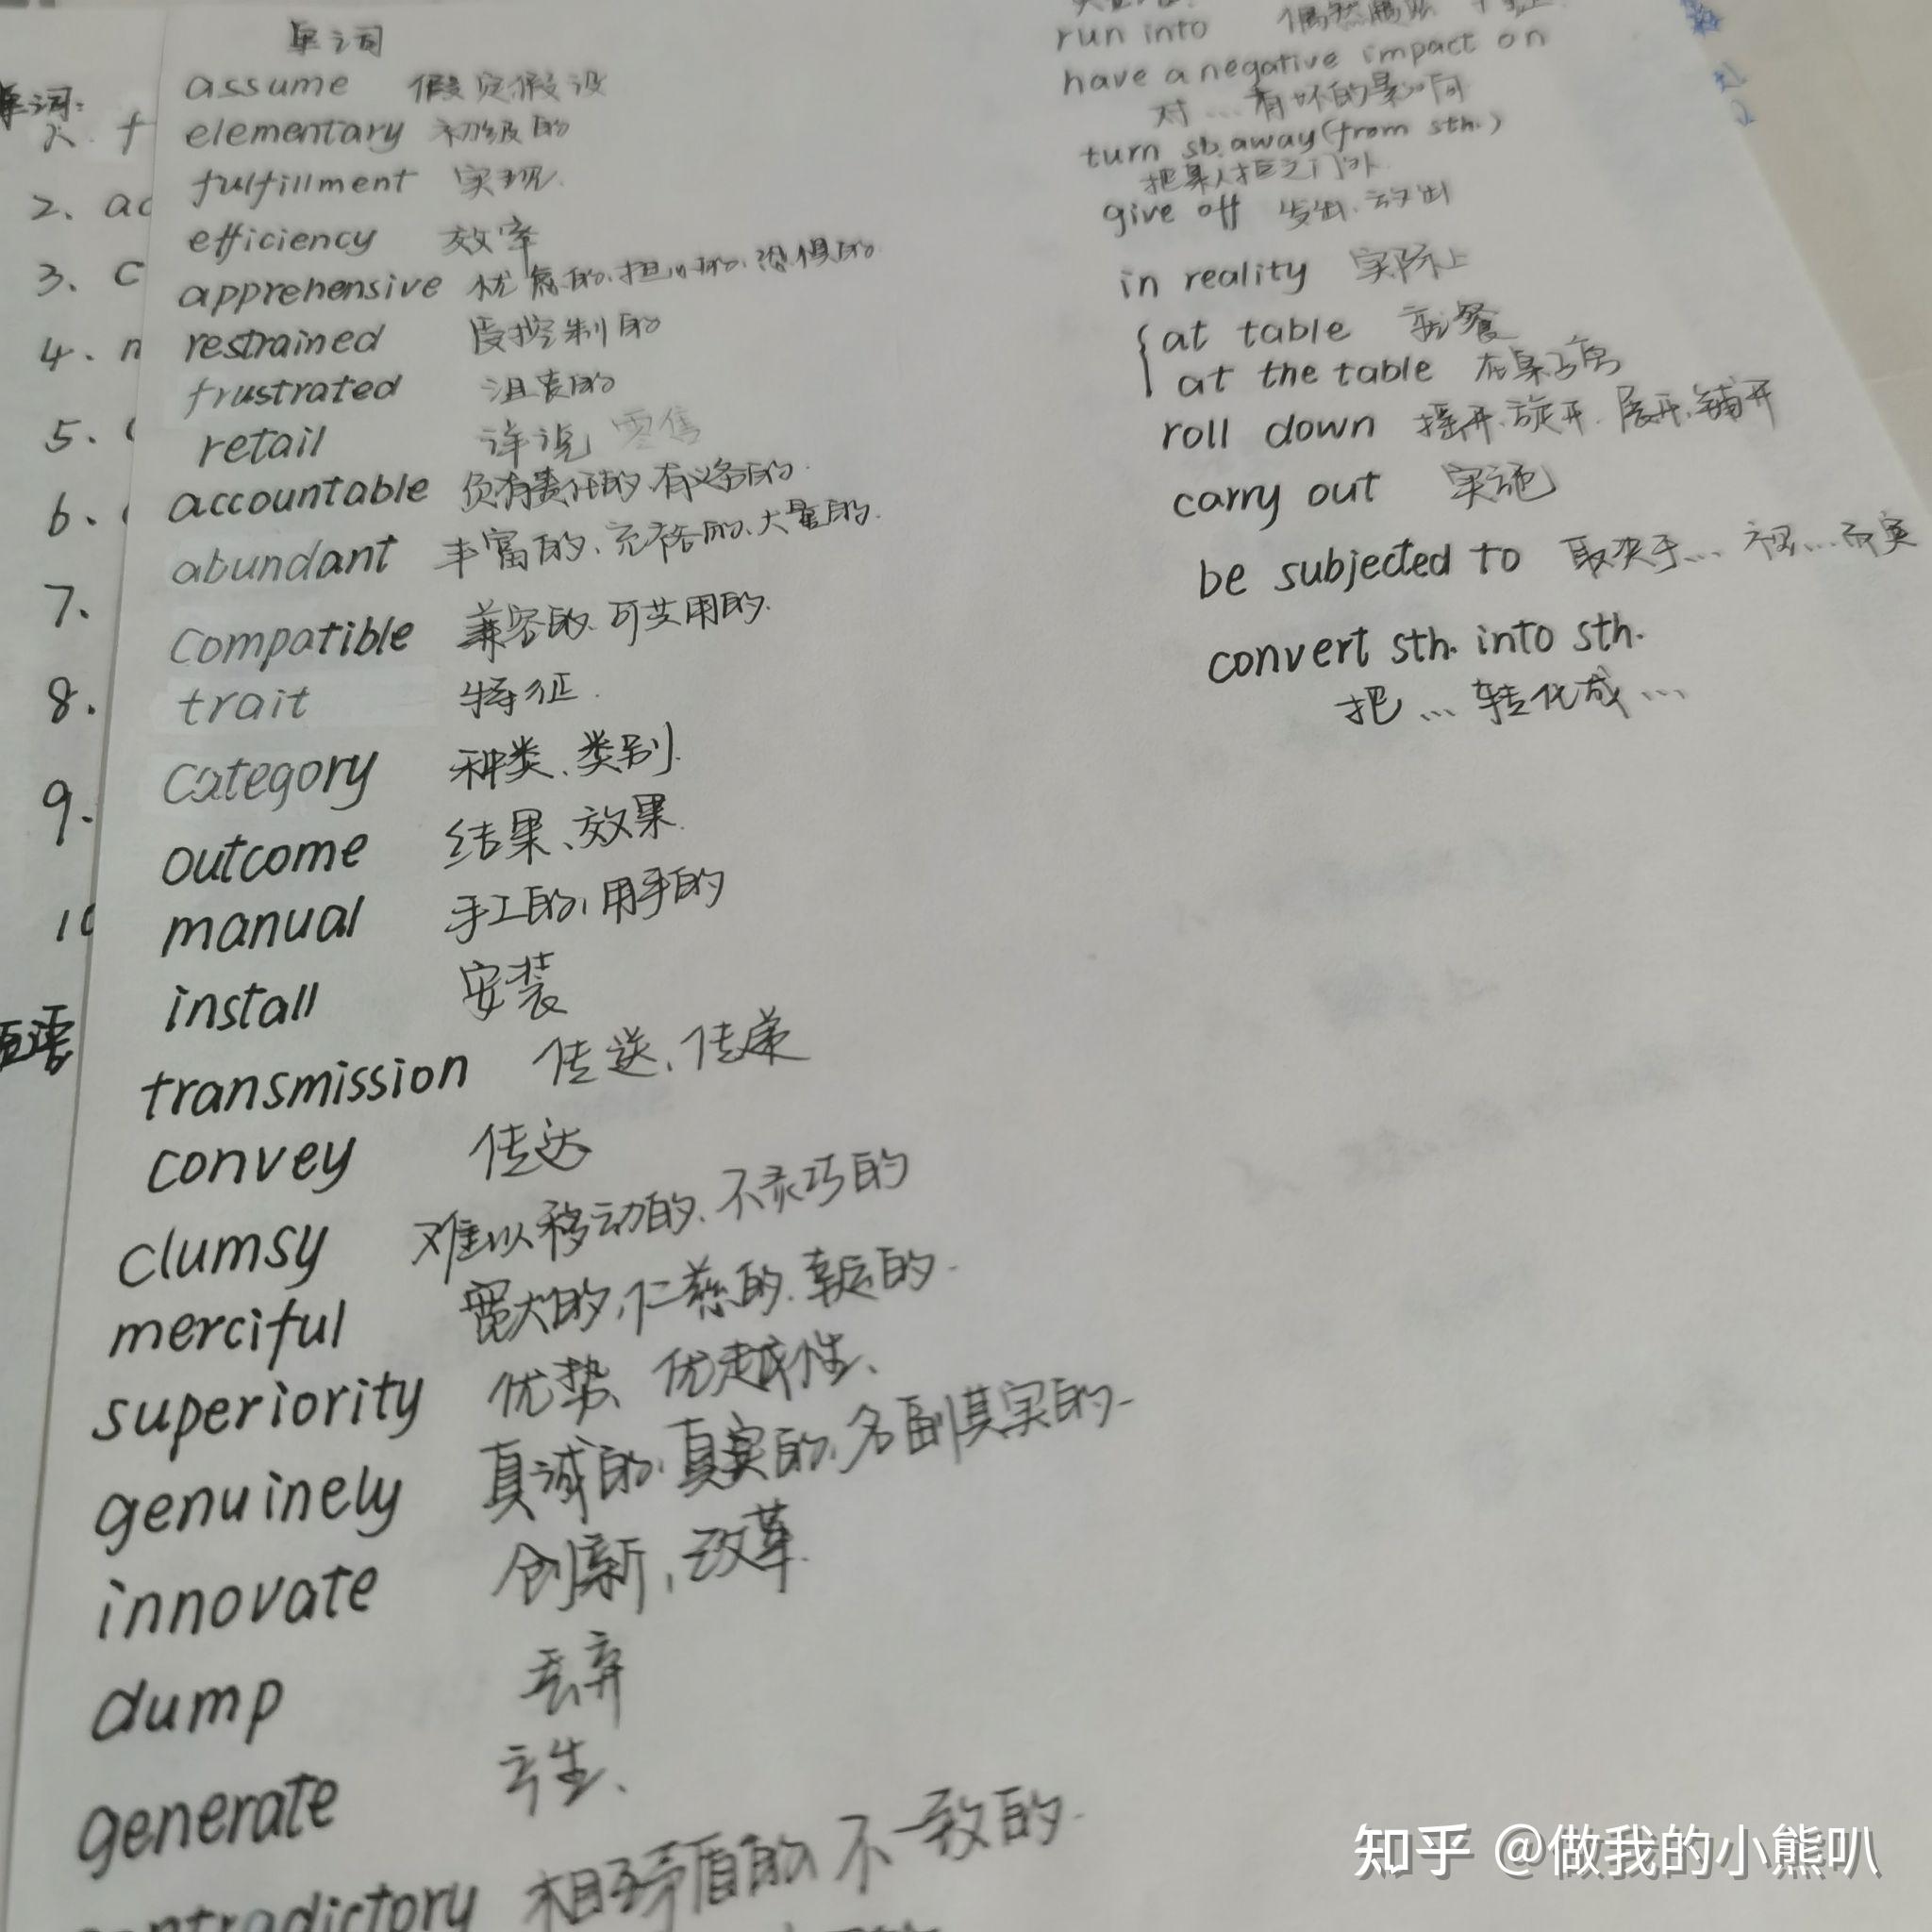 单词
assume 假定假设
elementary 初级的
fulfillment 实现.
efficiency 效率
apprehensive 忧虑的、担心的、恐惧的
restrained 受控制的
frustrated 沮丧的
retail 详说 零售
accountable 负有责任的、有义务的.
abundant 丰富的、充裕的、大量的.
compatible 兼容的、可共用的.
trait 特征.
category 种类、类别.
outcome 结果、效果.
manual 手工的,用手的
install 安装
transmission 传送、传染
convey 传达
clumsy 难以移动的、不灵巧的
merciful 宽大的,仁慈的、幸运的.
superiority 优势、优越性、
genuinely 真诚的,真实的,名副其实的.
innovate 创新,改革.
dump 丢弃
generate 产生、
相互矛盾的 不一致的.
run into 偶然遇见
have a negative impact on
对…有坏的影响
turn sb. away (from sth.)
把某人拒之门外.
give off 发出、放出
in reality 实际上
at table 就餐
at the table 在桌子旁
roll down 摇开、旋开、展开、铺开
carry out 实施
be subjected to 取决于… 视…而定
convert sth. into sth.
把…转化成…
单词:
2. f
2. ac
3. c
4. n
5.
6.
7.
8.
9.
10
知乎 @做我的小熊叭